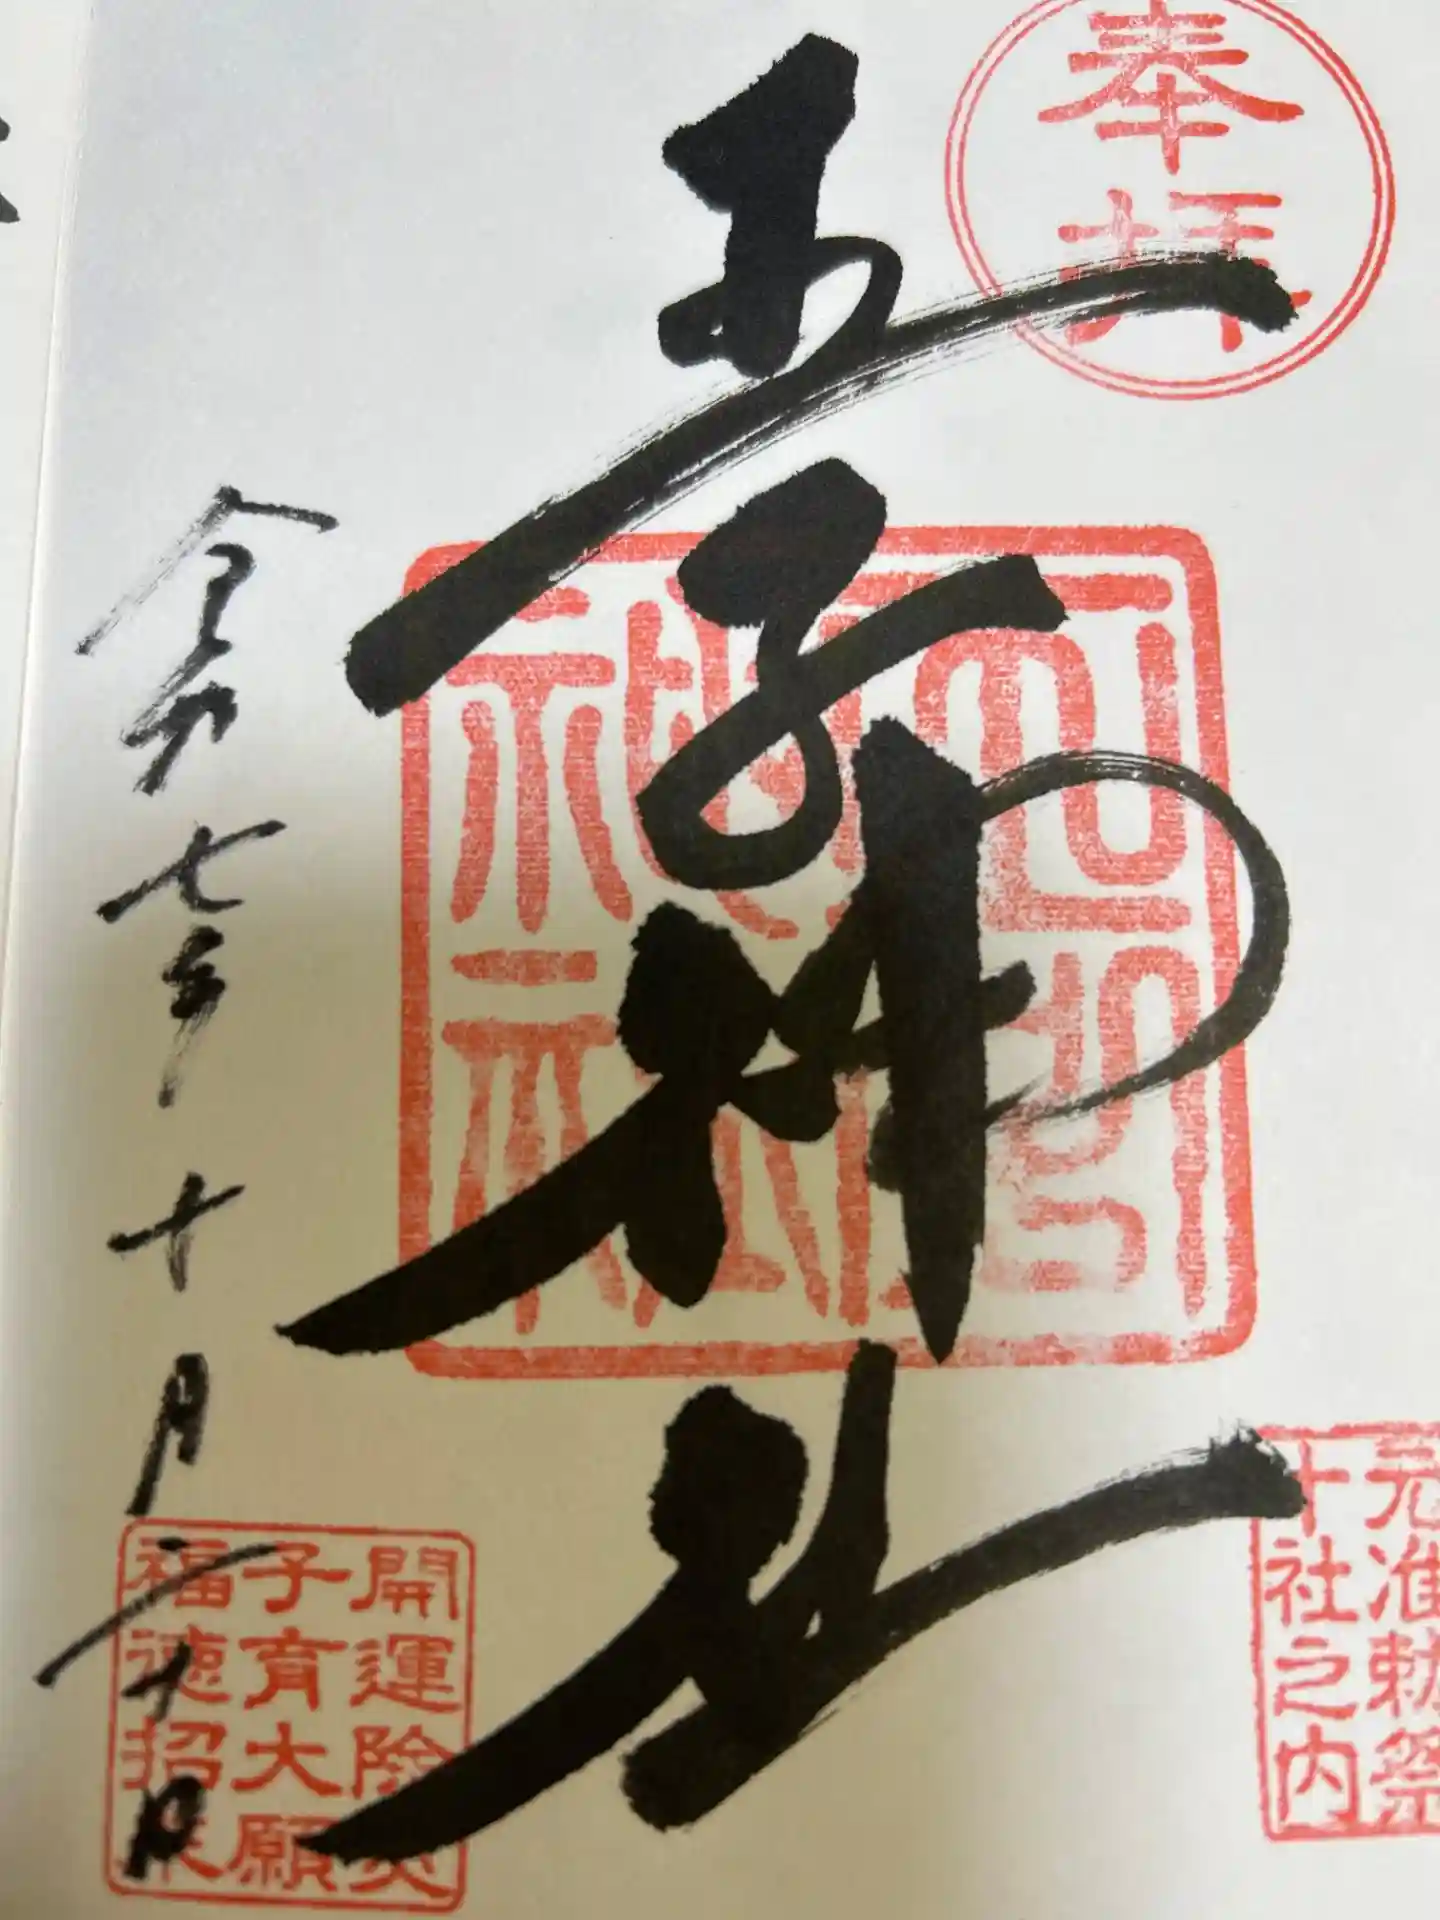 奉拝
元准勅祭
十社之内
王子神社
令和七年十月二十日
開運除災
子育大願
福徳招来